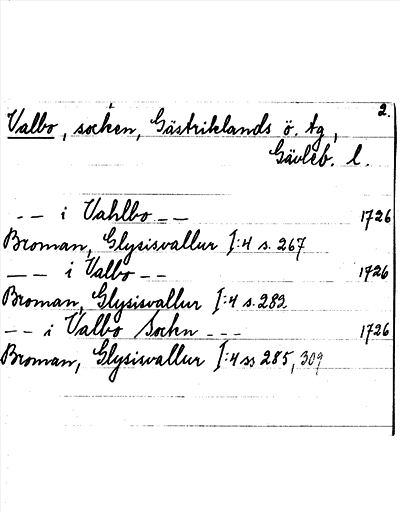 2.
Valbo, socken, Gästriklands ö. tg,
Gävleb. l.
-- i Vahlbo -- 1726
Broman, Glysisvallur I:4 s. 267
-- i Valbo -- 1726
Broman, Glysisvallur I:4 s. 282
-- i Valbo Sockn --- 1726
Broman, Glysisvallur I:4 ss 285, 309